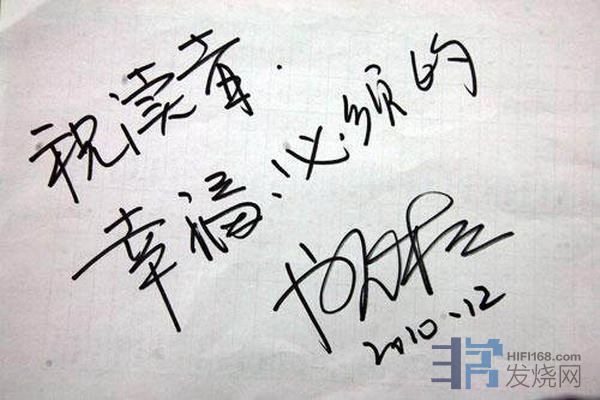 祝读者.
幸福、必须的
2010.12
HIFI168.com
发烧网